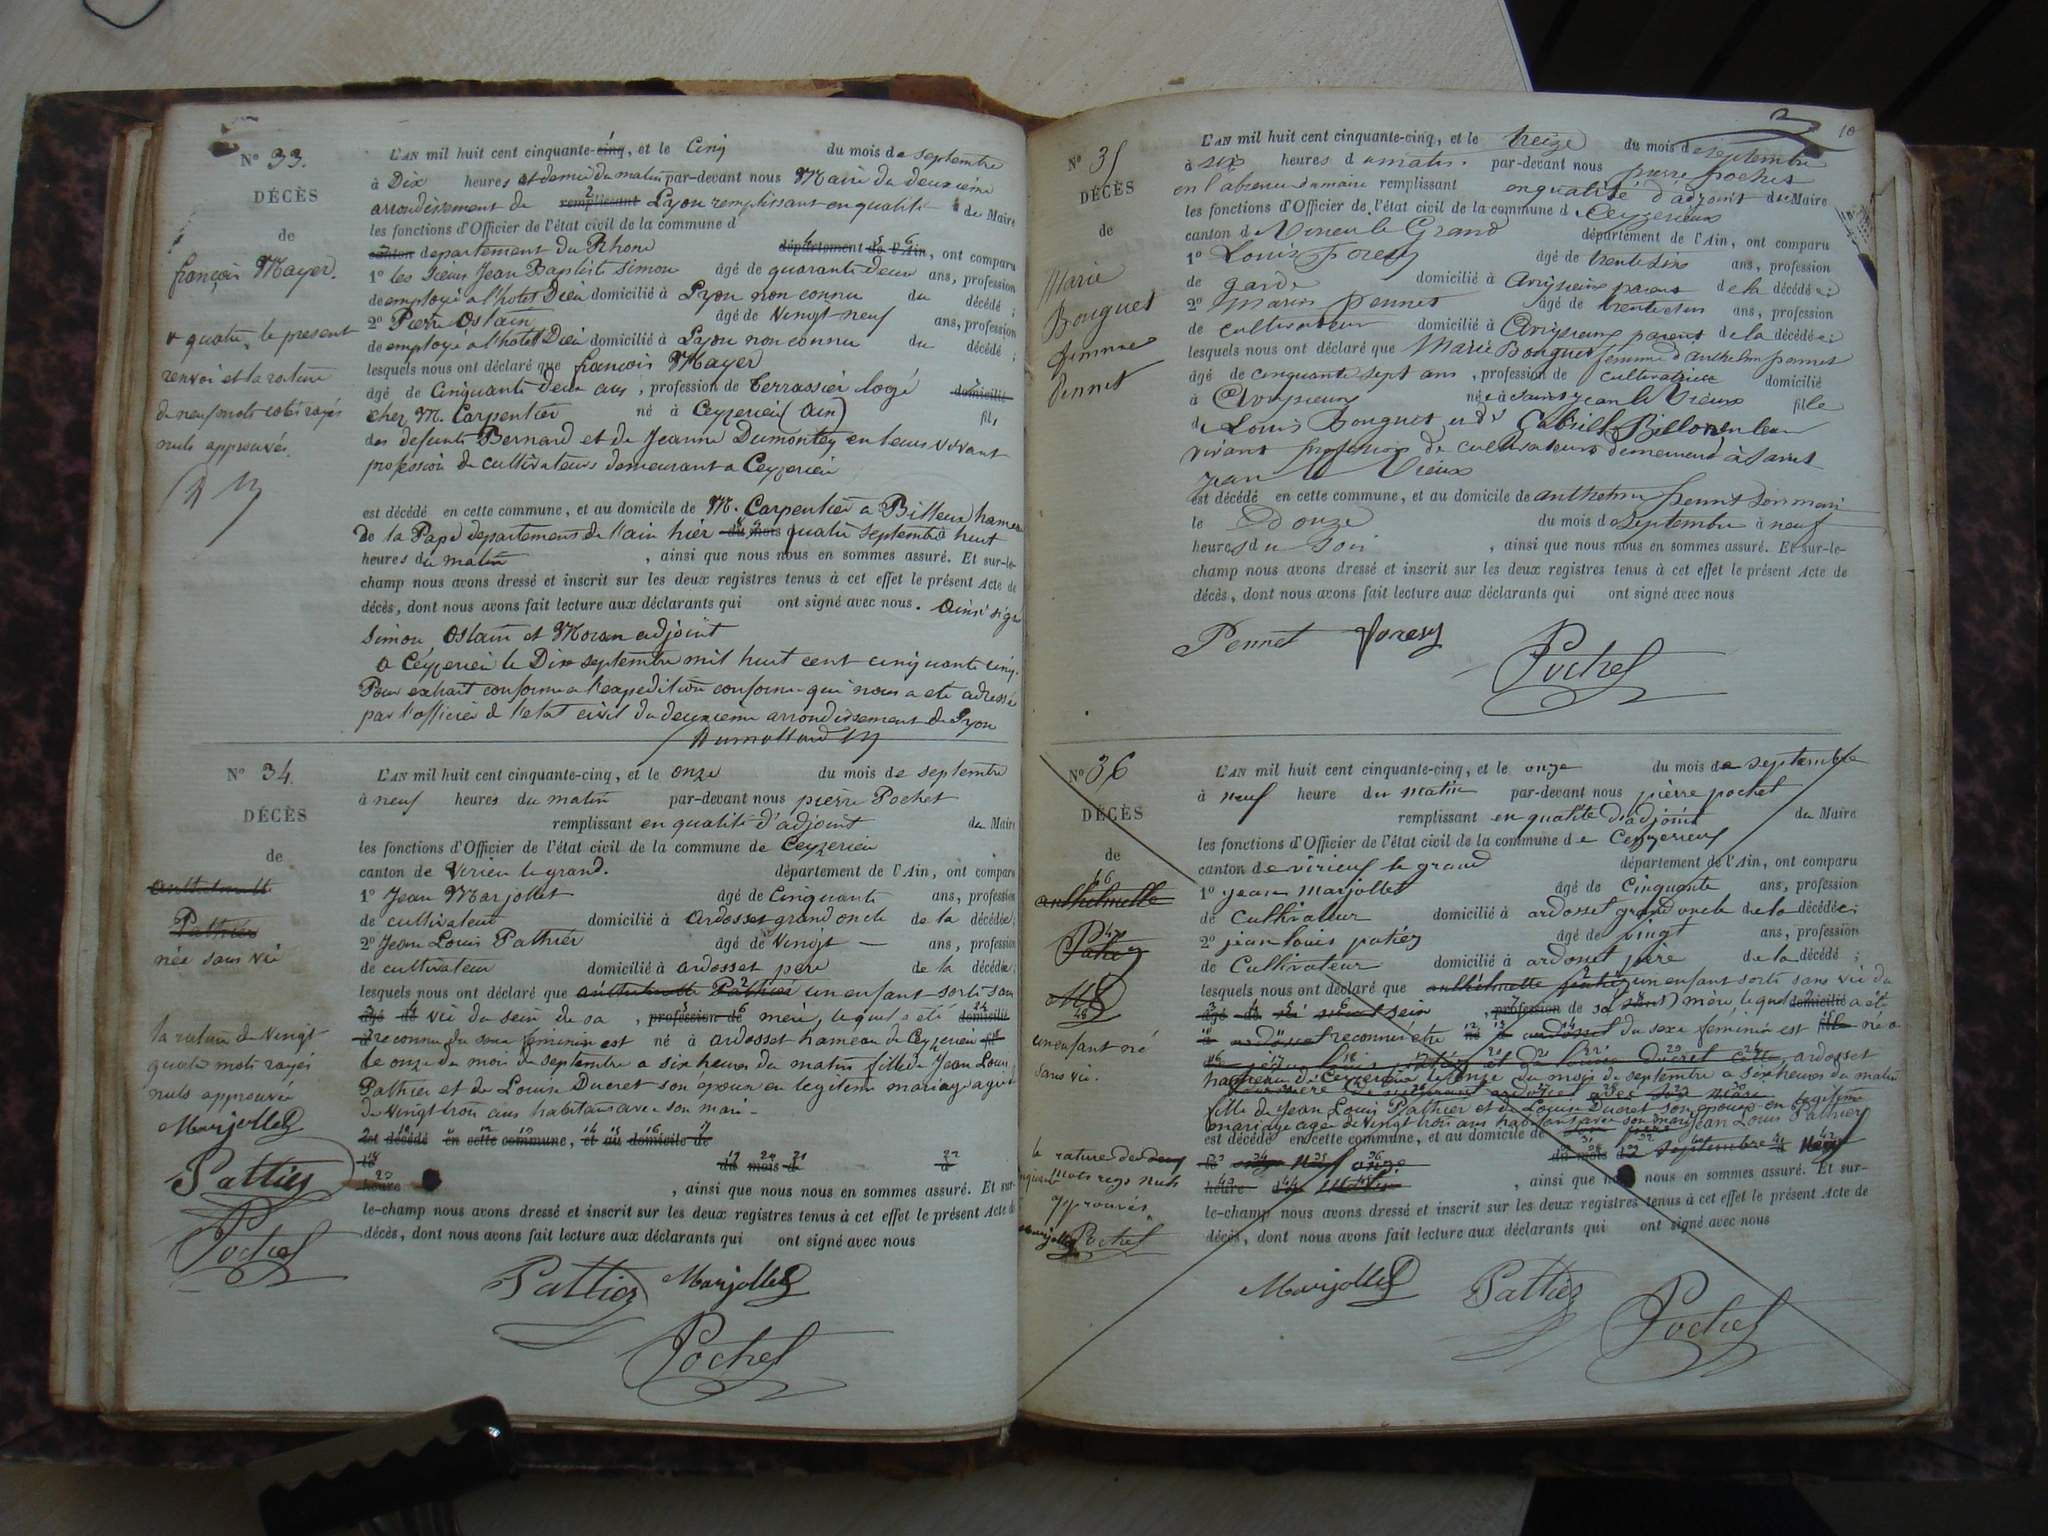 N° 33.
DÉCÈS
de
françois Mayer.
quatre, le present
renvoi et la rature
de neuf mots cotés rayés
nuls approuvés.
L'AN mil huit cent cinquante-cinq, et le Cinq du mois de septembre
à Dix heures et demie du matin par-devant nous Maire du deuxième
arrondissement de remplissant Lyon remplissant en qualité de Maire
les fonctions d'Officier de l'état civil de la commune d
canton departement du Rhone département de l'Ain, ont comparu
1° les Sieurs Jean Baptiste Simon âgé de quarante deux ans, profession
de employé a l'hotel Dieu domicilié à Lyon non connu du décédé ;
2° Pierre Ostain âgé de Vingt neuf ans, profession
de employé a l'hotel Dieu domicilié à Lyon non connu du décédé ;
lesquels nous ont déclaré que françois Mayer
âgé de Cinquante deux ans, profession de Terrassier logé domicilié
chez M. Carpentier né à Ceyzerieu (Ain) fils
des defunts Bernard et de Jeanne Dumontey en leurs vivant
profession de cultivateurs demeurant a Ceyzerieu
est décédé en cette commune, et au domicile de M. Carpentier a Billeux hameau
de la Pape departement de l'ain hier du mois quatre septembre huit
heures du matin, ainsi que nous nous en sommes assuré. Et sur-le-
champ nous avons dressé et inscrit sur les deux registres tenus à cet effet le présent Acte de
décès, dont nous avons fait lecture aux déclarants qui ont signé avec nous. Ainsi signé
Simon Ostain et Moran adjoint
a Ceyzerieu le Dix septembre mil huit cent cinquante cinq.
Pour extrait conforme a l'expedition conforme qui nous a été adressé
par l'officier de l'etat civil du deuxieme arrondissement de Lyon
Dumollard
N° 34.
DÉCÈS
de
anthelmette
Pathier
née sans vie
la rature de vingt
quatre mots rayés
nuls approuvée
Marjollet
Pattiez
Pochet
L'AN mil huit cent cinquante-cinq, et le onze du mois de septembre
à neuf heures du matin par-devant nous pierre Pochet
remplissant en qualité d'adjoint du Maire
les fonctions d'Officier de l'état civil de la commune de Ceyzerieu
canton de Virieu le grand. département de l'Ain, ont comparu
1° Jean Marjollet âgé de Cinquante ans, profession
de cultivateur domicilié à ardosset grand oncle de la décédée ;
2° Jean Louis Pathier âgé de Vingt ans, profession
de cultivateur domicilié à ardosset pere de la décédée ;
lesquels nous ont déclaré que anthelmette Pathier un enfant sorti sans
âgé de vie du sein de sa, profession de mère, lequel a eté domicilié
à reconnu du sexe feminin est né à ardosset hameau de Ceyzerieu fil
le onze du mois de septembre a six heures du matin fille de Jean Louis
Pathier et de Louise Ducret son epouse en legitime mariage agée
de Vingt trois ans habitans avec son mari
est décédé en cette commune, et au domicile de
le du mois d à
heure, ainsi que nous nous en sommes assuré. Et sur-
le-champ nous avons dressé et inscrit sur les deux registres tenus à cet effet le présent Acte de
décès, dont nous avons fait lecture aux déclarants qui ont signé avec nous
Pattiez Marjollet
Pochet
10
N° 35
DÉCÈS
de
Marie
Bouguet
femme
Pennet
L'AN mil huit cent cinquante-cinq, et le treize du mois de septembre
à six heures du matin. par-devant nous pierre pochet
en l'absence du maire remplissant en qualité d'adjoint du Maire
les fonctions d'Officier de l'état civil de la commune d Ceyzerieux
canton d Virieu le Grand département de l'Ain, ont comparu
1° Louis forest âgé de trente six ans, profession
de garde domicilié à parent de la décédée ;
2° Marin pennet âgé de ans, profession
de cultivateur domicilié à parent de la décédée ;
lesquels nous ont déclaré que Marie Bouguet femme d'anthelme pennet
âgé de cinquante sept ans, profession de cultivatrice domicilié
à né à Saint Jean le Vieux fille
de Louis Bouguet et de en leur
vivant profession de cultivateurs demeurant à Saint
Jean Vieux
est décédé en cette commune, et au domicile de anthelme pennet son mari
le Douze du mois de septembre à neuf
heures du Soir, ainsi que nous nous en sommes assuré. Et sur-le-
champ nous avons dressé et inscrit sur les deux registres tenus à cet effet le présent Acte de
décès, dont nous avons fait lecture aux déclarants qui ont signé avec nous
Pennet forest
Pochet
N° 36
DÉCÈS
de
anthelmette
Patiez
un enfant né
sans vie.
la rature de
mots rayés nuls
approuvés
Marjollet Pochet
L'AN mil huit cent cinquante-cinq, et le onze du mois de septembre
à neuf heure du matin par-devant nous pierre pochet
remplissant en qualité d'adjoint du Maire
les fonctions d'Officier de l'état civil de la commune de Ceyzerieux
canton de virieux le grand département de l'Ain, ont comparu
1° jean marjollet âgé de Cinquante ans, profession
de Cultivateur domicilié à ardosset grand oncle de la décédée ;
2° jean louis patiez âgé de vingt ans, profession
de Cultivateur domicilié à ardosset père de la décédé ;
lesquels nous ont déclaré que anthelmette patiez un enfant sorti sans vie du
âgé de sein, profession de sa mère, lequel domicilié a eté
à ardosset reconnu être né à ardosset du sexe féminin est fille né a
ardosset
hameau de Ceyzerieu le onze du mois de septembre a six heures du matin
fille de Jean Louis Pathier et de Louise Ducret son epouse en legitime
mariage agée de Vingt trois ans habitans avec son mari Jean Louis Pathier
est décédé en cette commune, et au domicile de
le onze du mois de septembre à neuf
heure du matin, ainsi que nous nous en sommes assuré. Et sur-
le-champ nous avons dressé et inscrit sur les deux registres tenus à cet effet le présent Acte de
décès, dont nous avons fait lecture aux déclarants qui ont signé avec nous
Marjollet Pattiez Pochet